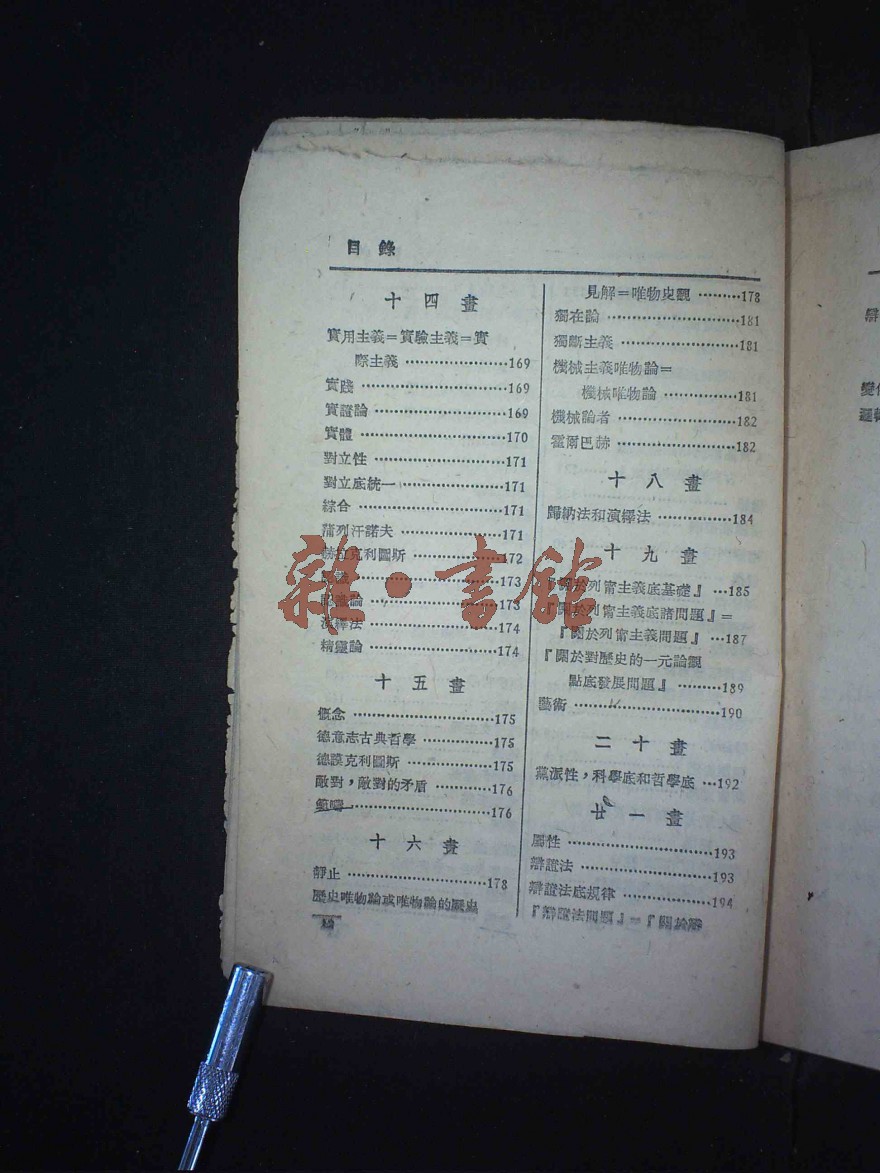 目錄
十四畫
實用主義＝實驗主義＝實
際主義 ………………169
實踐 ……………………169
實證論 …………………169
實體 ……………………170
對立性 …………………171
對立底統一 ……………171
綜合 ……………………171
蒲列汗諾夫 ……………171
赫拉克利圖斯 …………172
…………………173
論 …………………173
演繹法 …………………174
精靈論 …………………174
十五畫
概念 ……………………175
德意志古典哲學 ………175
德謨克利圖斯 …………175
敵對，敵對的矛盾 ……176
範疇 ……………………176
十六畫
靜止 ……………………178
歷史唯物論或唯物論的歷史
見解＝唯物史觀 ………178
獨在論 …………………181
獨斷主義 ………………181
機械主義唯物論＝
機械唯物論 …………181
機械論者 ………………182
霍爾巴赫 ………………182
十八畫
歸納法和演繹法 ………184
十九畫
『關於列甯主義底基礎』 …185
『關於列甯主義底諸問題』＝
『關於列甯主義問題』 …187
『關於對歷史的一元論觀
點底發展問題』 ………189
藝術 ……………………190
二十畫
黨派性，科學底和哲學底 …192
廿一畫
屬性 ……………………193
辯證法 …………………193
辯證法底規律 …………194
『辯證法問題』＝『關於辯
雜·書館